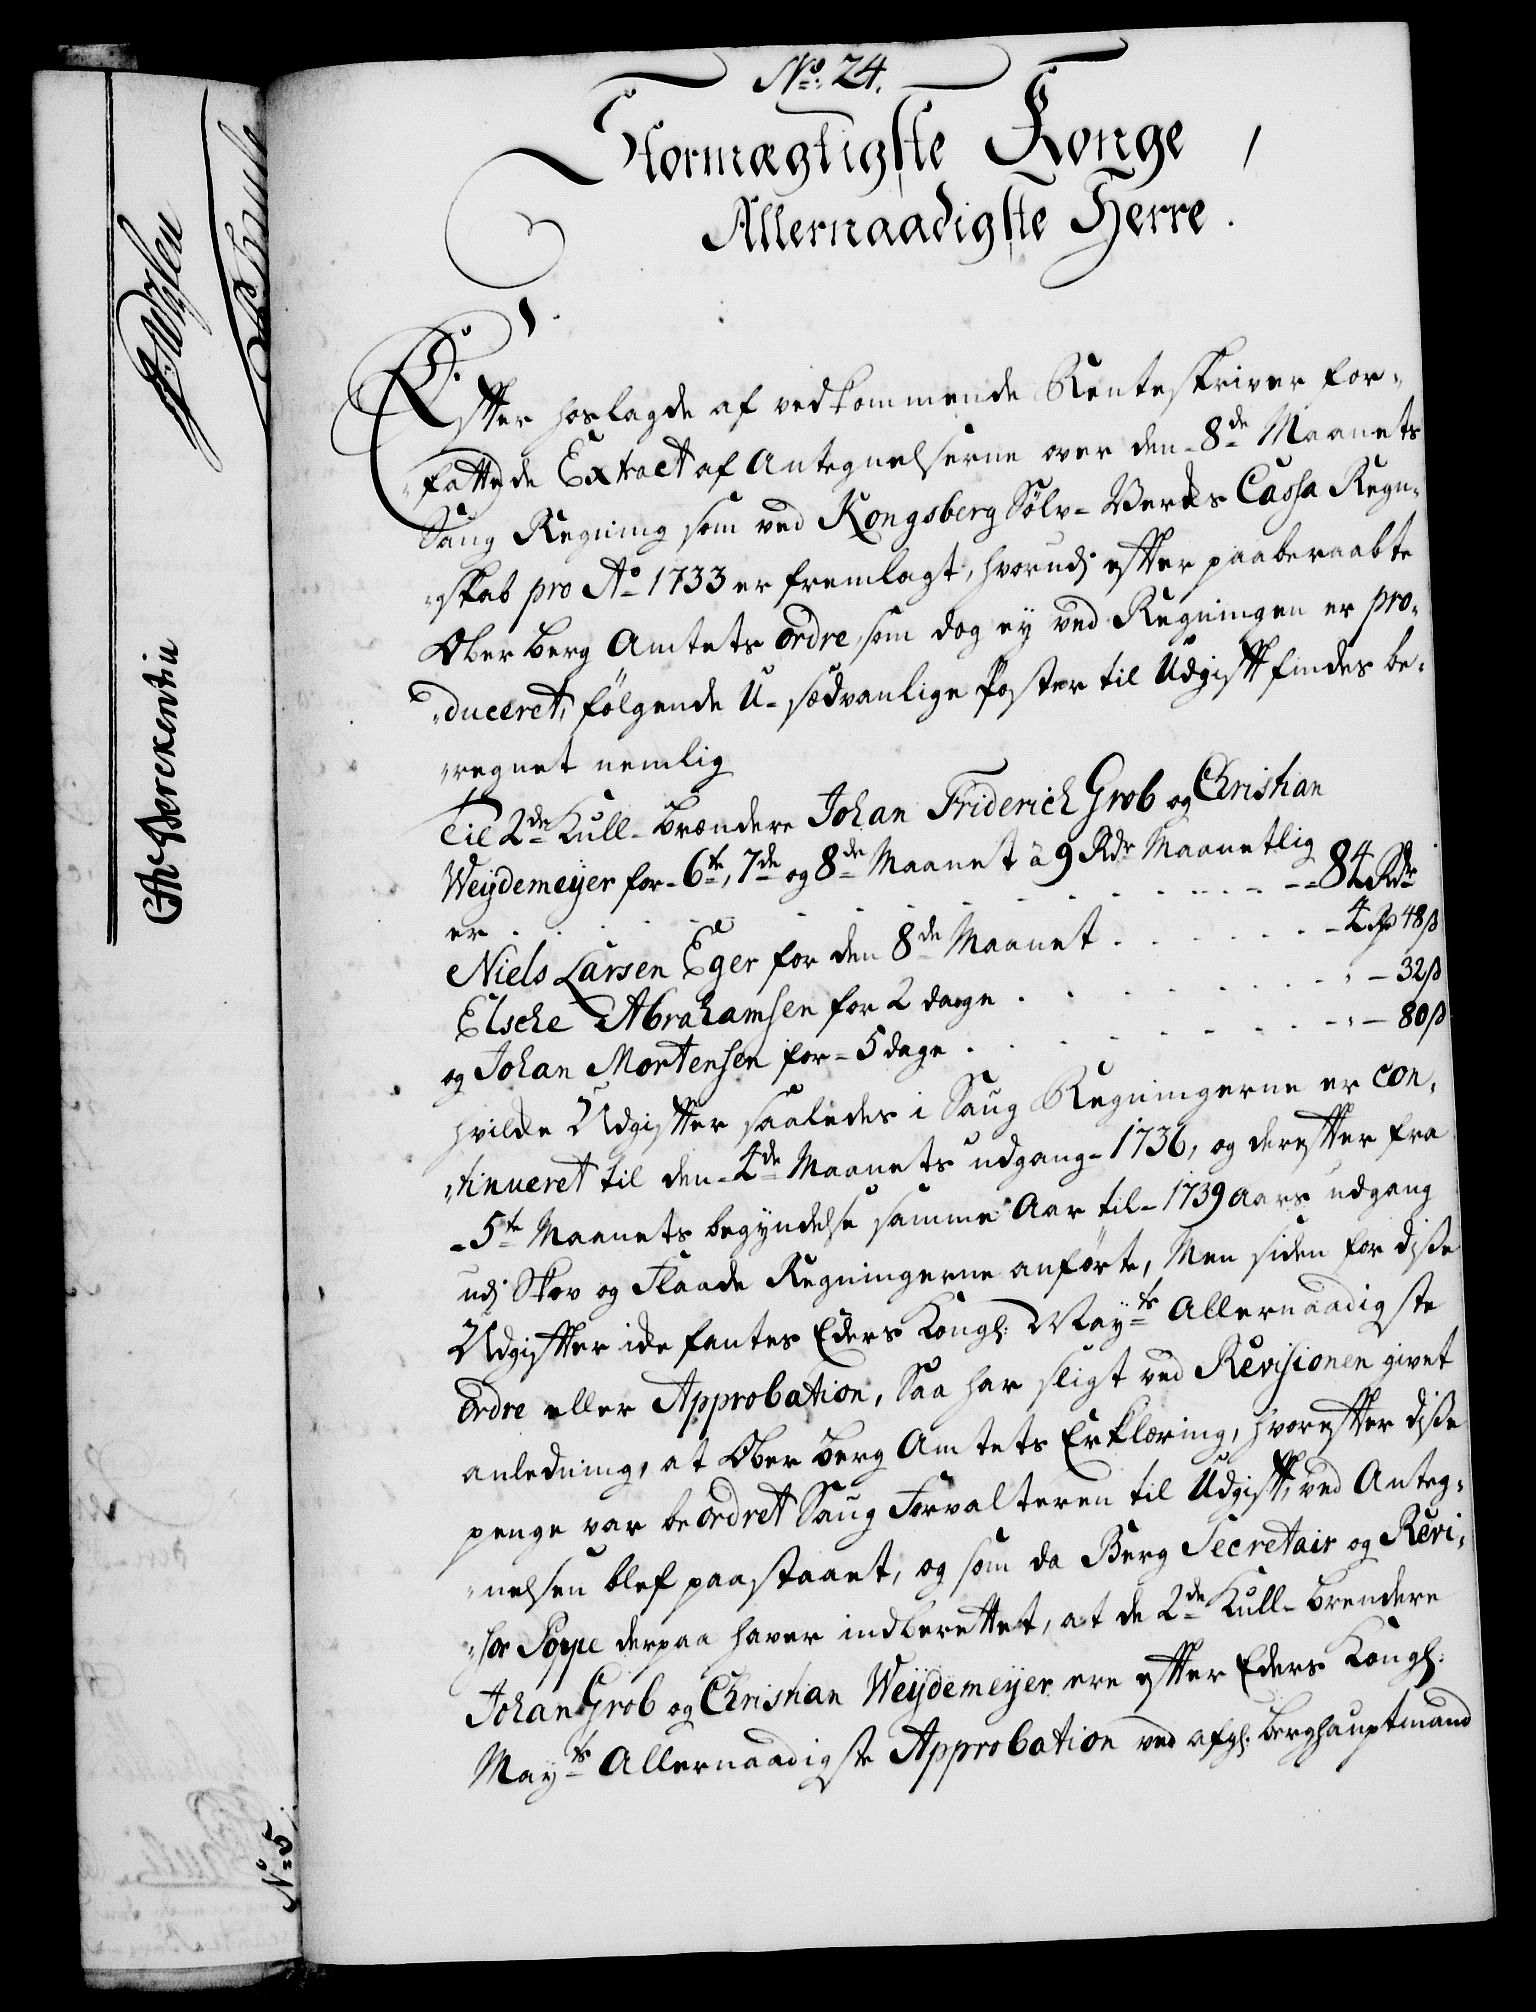 No: 24.
Stormægtigste Konge
Allernaadigste Herre.
Efter hoslagde af vedkommende Renteskriver for-
fattede Extract af Antegnelserne over den 8de Maanets
Saug Regning som ved Kongsberg Sölv-Verks Cassa Regn-
skab pro Ao 1733 er fremlagt, hvorudj efter paaberaabte
Ober Berg Amtets ordre som dog ej ved Regningen er pro-
duceret, følgende U-sædvanlige Poster til Udgift findes be-
regnet nemlig
Til 2de Kull-brændere Johan Friderich Grob og Christian
Weÿdemeÿer for 6te, 7de og 8de Maanet à 9 Rdr Maanetlig
er - - - 84 Rdr
Niels Larsen Eger for den 8de Maanet - - - 4 48ß
Elsche Abrahamsen for 2 dage - - - 32ß
og Johan Mortensen for 5 dage - - - 80ß
hvilke Udgifter saaledes i Saug Regningerne er con-
tinueret til den 4de Maanets udgang 1736, og derefter fra
5te Maanets begyndelse samme Aar til 1739 Aars udgang
udj Skov og Flaade Regningerne anførte, Men siden for disse
Udgifter icke fantes Eders Kongl: Mayts Allernaadigste
ordre eller Approbation, Saa har sligt ved Revisionen givet
anledning, at Ober Berg Amtets Erklæring, hvorefter disse
penge var beordret Saug Forvalteren til Udgift, ved Anteg-
nelsen blef paastaaet, og som da Berg Secretair og Revi-
sor Poppe derpaa haver indberettet, at de 2de Kull-brendere
Johan Grob og Christian Weÿdemeÿer ere efter Eders Kongl:
Mayts Allernaadigste Approbation ved afg: Berghauptmand
No 5.